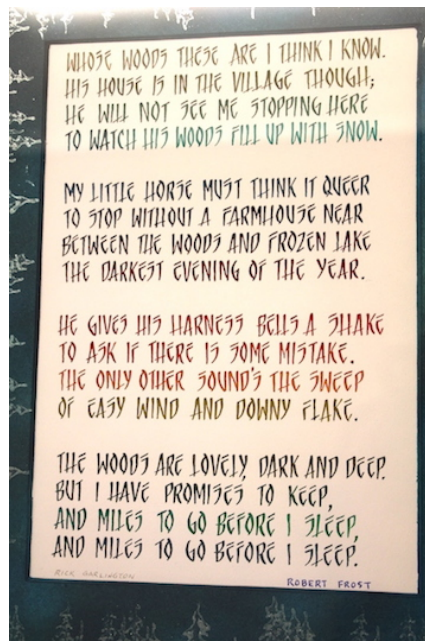 WHOSE WOODS THESE ARE I THINK I KNOW.
HIS HOUSE IS IN THE VILLAGE THOUGH;
HE WILL NOT SEE ME STOPPING HERE
TO WATCH HIS WOODS FILL UP WITH SNOW.
MY LITTLE HORSE MUST THINK IT QUEER
TO STOP WITHOUT A FARMHOUSE NEAR
BETWEEN THE WOODS AND FROZEN LAKE
THE DARKEST EVENING OF THE YEAR.
HE GIVES HIS HARNESS BELLS A SHAKE
TO ASK IF THERE IS SOME MISTAKE.
THE ONLY OTHER SOUND'S THE SWEEP
OF EASY WIND AND DOWNY FLAKE.
THE WOODS ARE LOVELY, DARK AND DEEP.
BUT I HAVE PROMISES TO KEEP,
AND MILES TO GO BEFORE I SLEEP,
AND MILES TO GO BEFORE I SLEEP.
RICK
ROBERT FROST